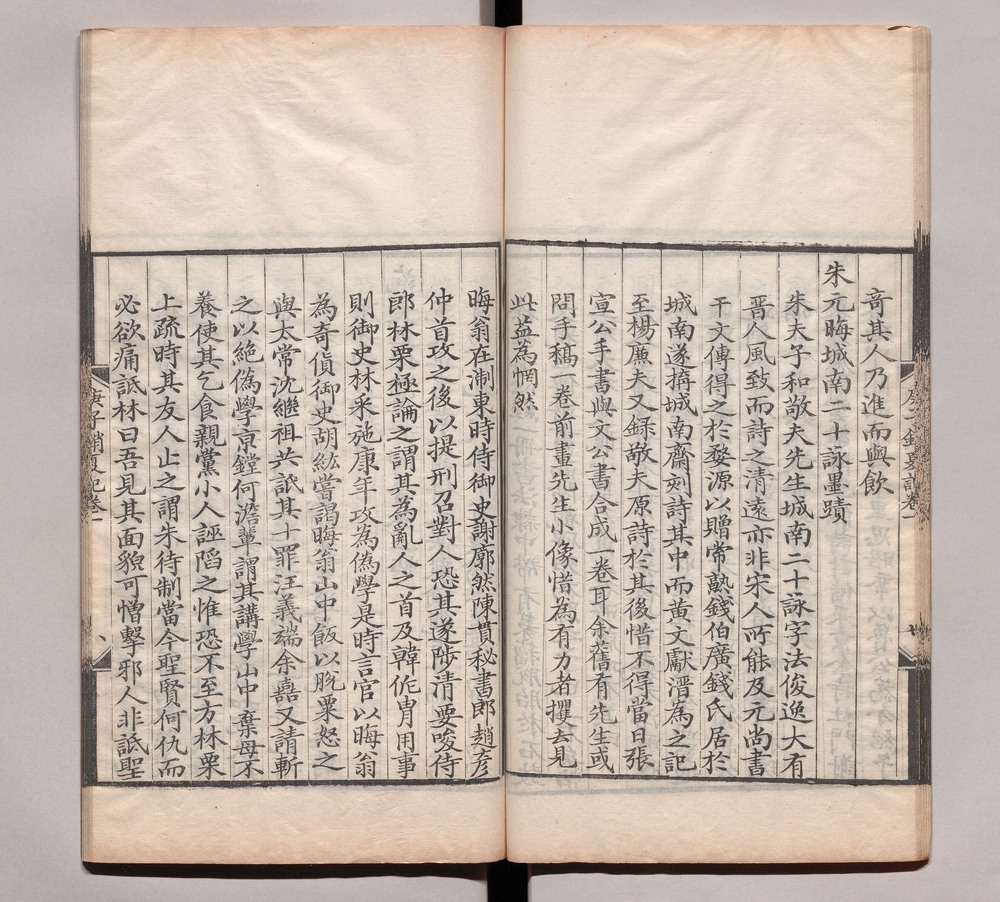 奇其人乃進而與飲
朱元晦城南二十詠墨蹟
朱夫子和敬夫先生城南二十詠字法俊逸大有
晉人風致而詩之清遠亦非宋人所能及元尚書
干文傳得之於婺源以贈常熟錢伯廣錢氏居於
城南遂搆城南齋刻詩其中而黄文獻溍為之記
至楊廉夫又録敬夫原詩於其後惜不得當日張
宣公手書與文公書合成一卷耳余舊有先生或
問手稿一卷前畫先生小像惜為有力者攫去見
此益為惘然
晦翁在淛東時侍御史謝廓然陳賈秘書郎趙彦
仲首攻之後以提刑召對人恐其遂陟清要唆侍
郎林栗極論之謂其為亂人之首及韓侂胄用事
則御史林采施康年攻為偽學是時言官以晦翁
為奇貨御史胡紘嘗謁晦翁山中飯以脱粟怒之
與太常沈繼祖共詆其十罪汪義端余嚞又請斬
之以絶偽學京鏜何澹輩謂其講學山中棄母不
養使其乞食親黨小人誣䧟之惟恐不至方林栗
上疏時其友人止之謂朱待制當今聖賢何仇而
必欲痛詆林曰吾見其面貌可憎擊邪人非詆聖
庚子銷夏記卷一
八